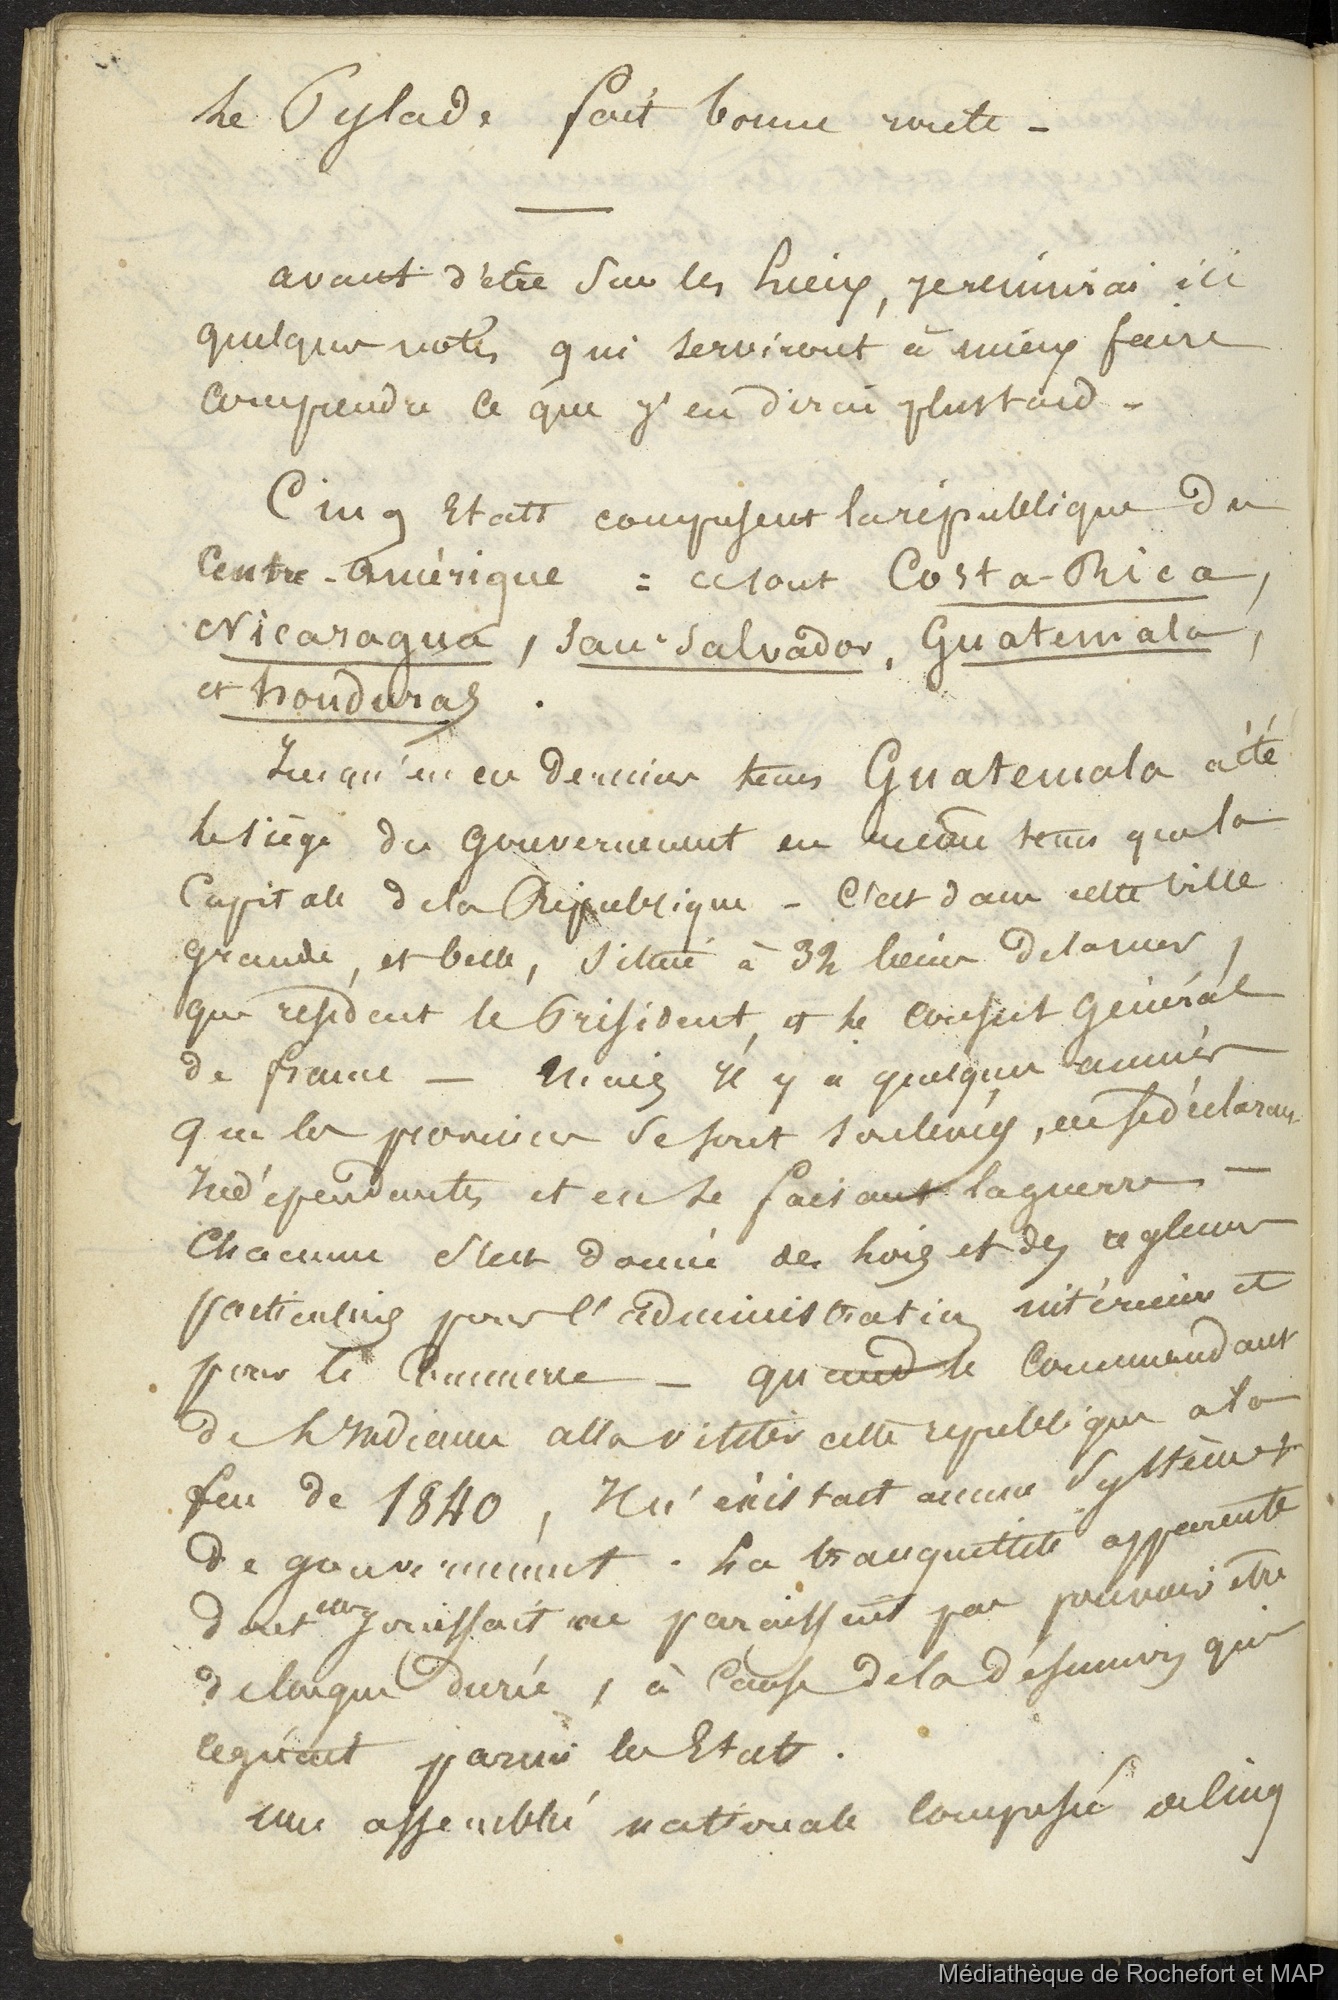 Le Pylade fait bonne route -
avant d'être sur les Lieux, je réunirai ici
quelques notes qui serviront à mieux faire
comprendre ce que j'en dirai plus tard -
Cinq Etats composent la république du
Centre-Amérique : ce sont Costa-Rica,
Nicaragua, San-Salvador, Guatemala,
et honduras.
Jusqu'en ces derniers tems Guatemala a été
le siège du Gouvernement en même tems que la
Capitale de la République - C'est dans cette ville
grande, et belle, située à 32 lieues de la mer,
que resident le Président, et le consul Général
de france — Mais il y a quelques années
que les provinces se sont soulevées, en se déclarant
Indépendantes et en se faisant la guerre —
Chacune s'est donné des Lois et des reglemens
particuliers pour l'administration intérieure et
pour le Commerce — quand le Commandant
de L'Indienne alla visiter cette republique à la
fin de 1840, Il n'existait aucun Système
de gouvernement. La tranquillité apparente
dont on jouissait ne paraissait pas pouvoir être
de longue durée, à Cause de la désunion qui
regnait parmi les Etats.
une assemblée nationale Composée de Cinq
Médiathèque de Rochefort et MAP